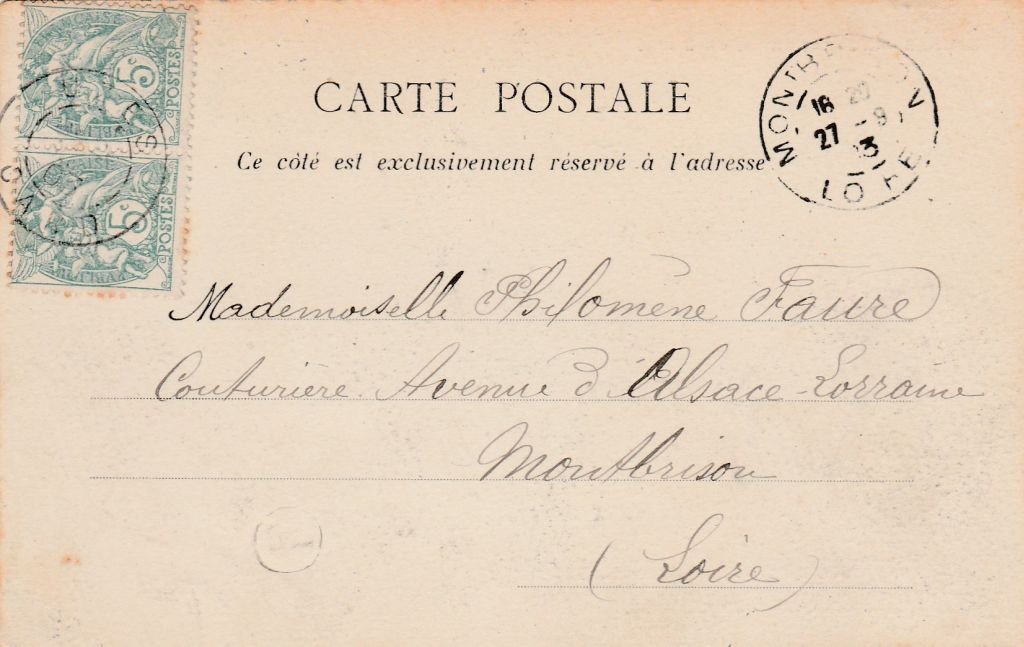 RÉPUBLIQUE FRANÇAISE
5c
POSTES
5c
POSTES
CARTE POSTALE
Ce côté est exclusivement réservé à l'adresse
MONTBRISON
18 20
27 -9
03
LOIRE
Mademoiselle Philomène Faure
Couturière Avenue d'Alsace-Lorraine
Montbrison
(Loire)